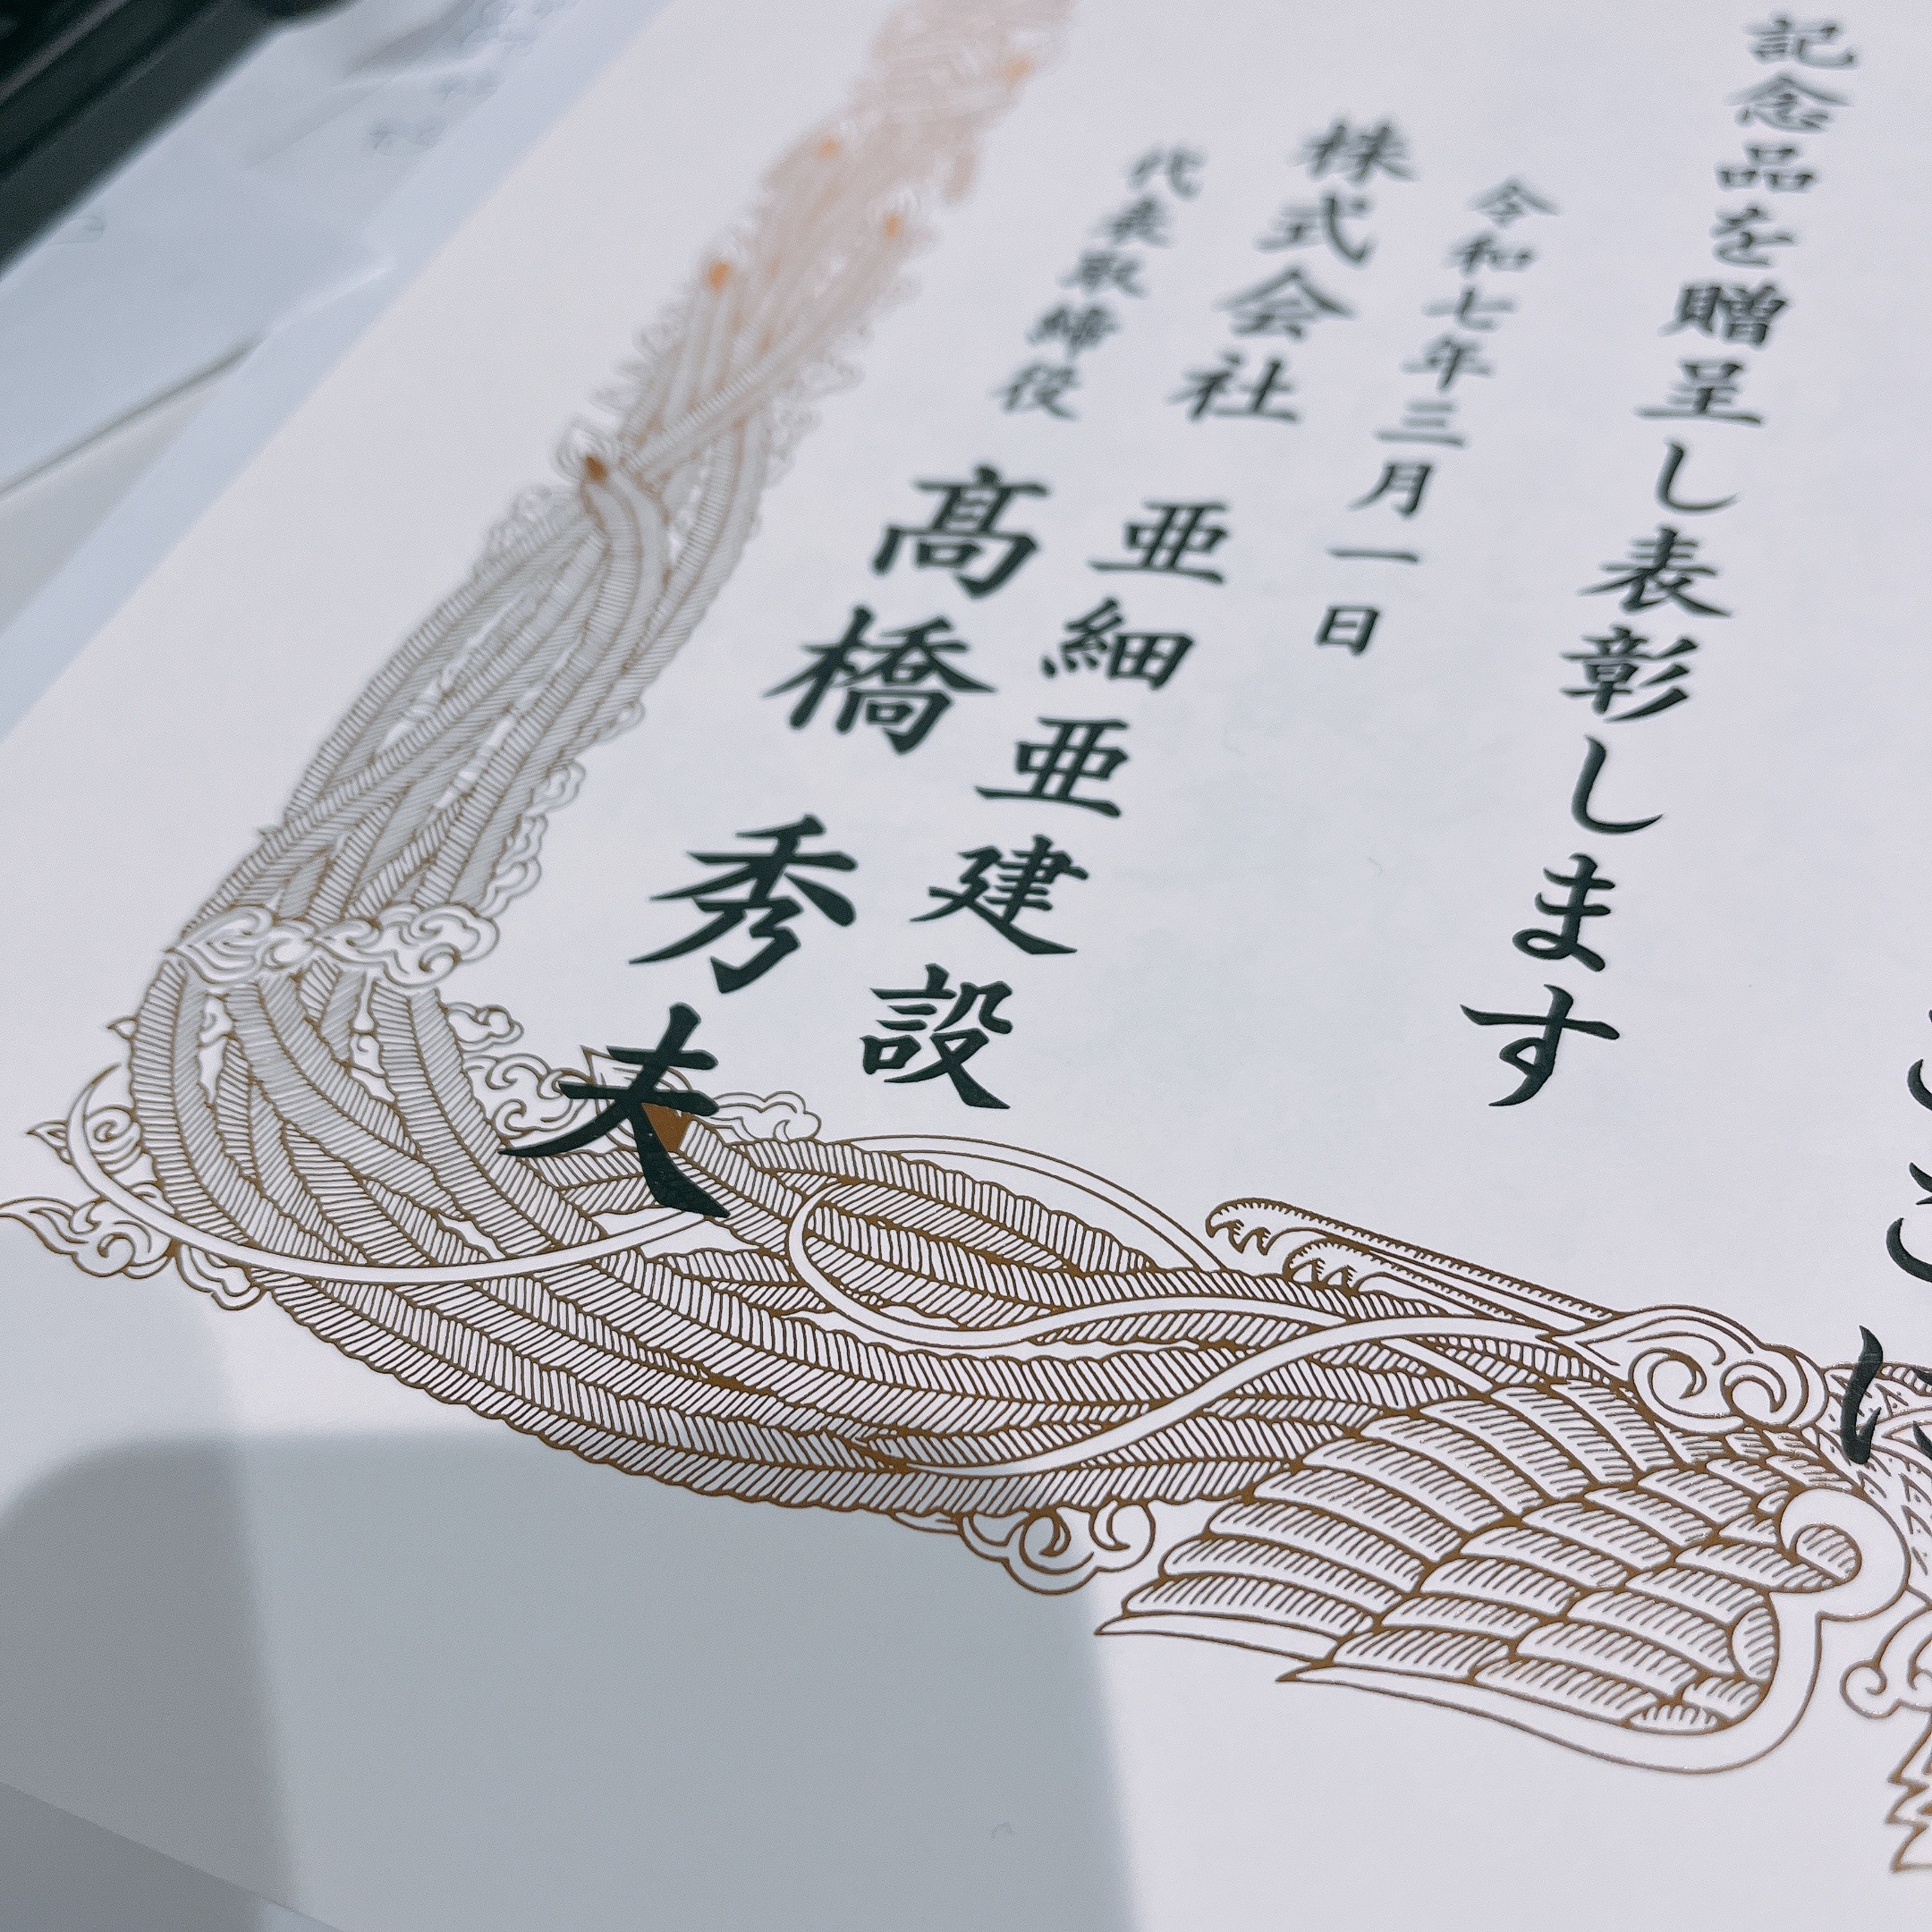 記念品を贈呈し表彰します
令和七年三月一日
株式会社 亜細亜建設
代表取締役 髙橋 秀夫